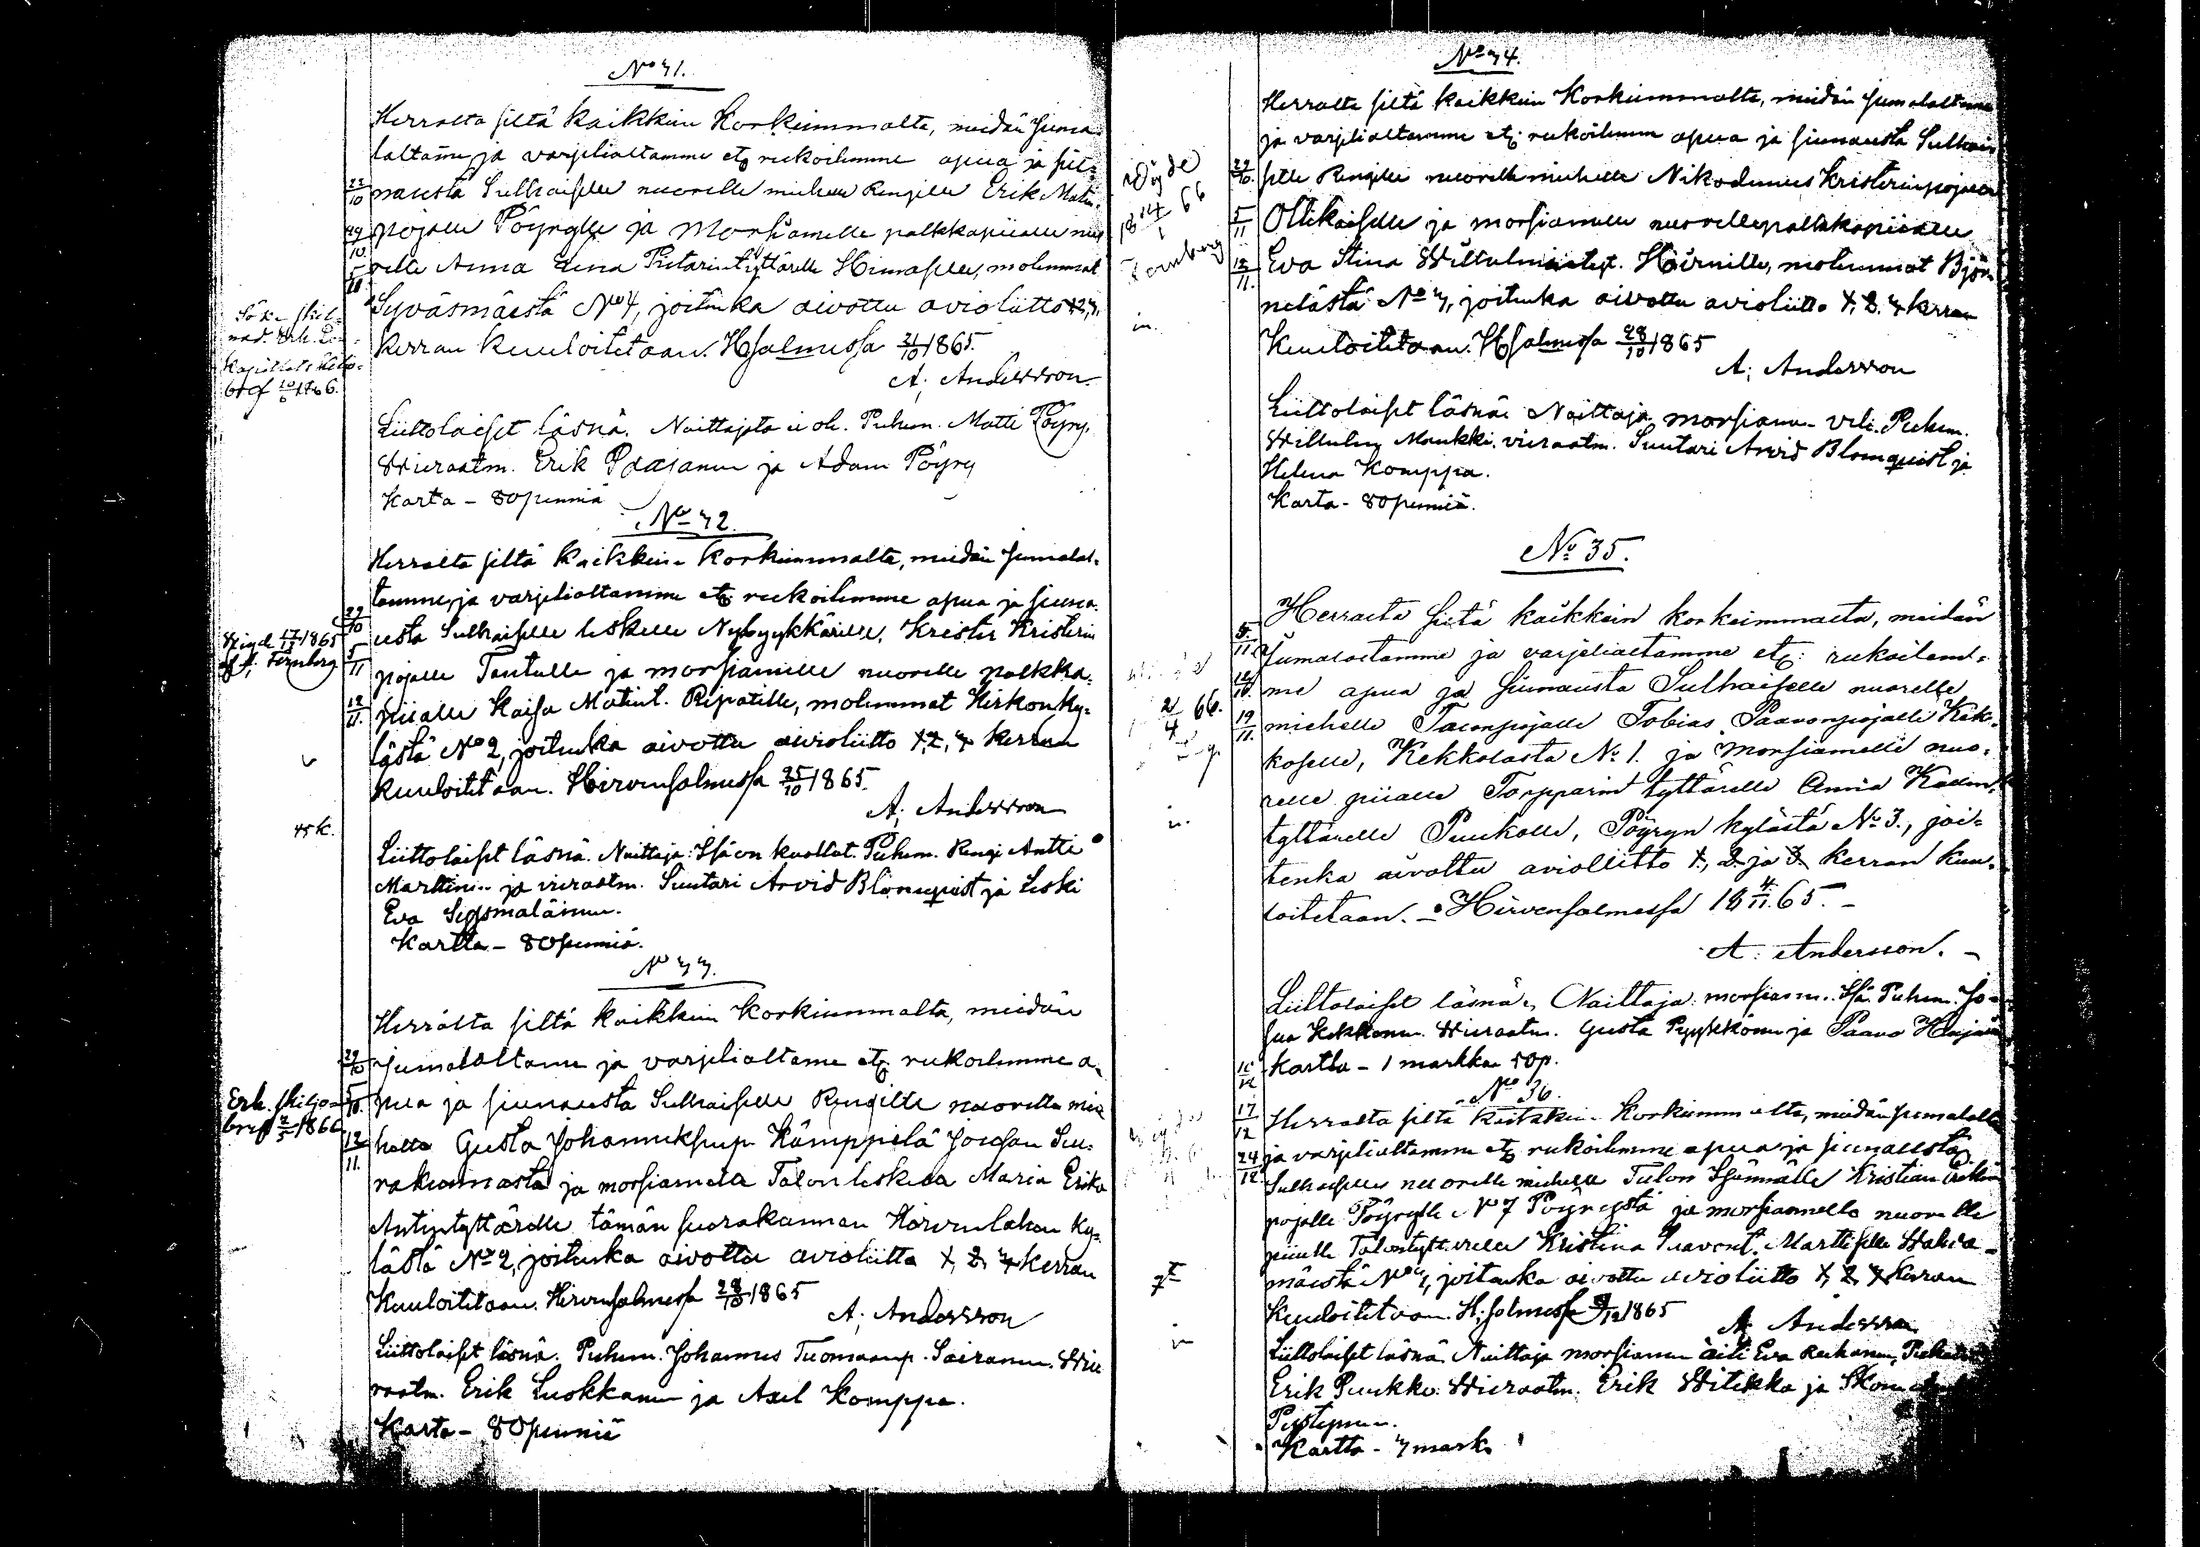 No 31.
Herralta siltä kaikkein Korkeimmalta, meidän Juma-
laltamme ja varjelialtamme etc rukoilemme apua ja siu-
22/10 nausta Sulhaiselle nuorelle miehelle Rengille Erik Matin-
29/10 pojalle Pöyrylle ja Morsiamelle palkkapiialle nuo-
5/11 relle Anna Lena Pietarintyttärelle Himaselle, molemmat
Syväsmäestä No 4, joitenka aivottu avioliitto 1,2,3,
kerran kuuloitetaan. H.salmessa 21/10 1865.
A. Andersson
Söka skil-
nad. Erh. Dom-
kapitlets skiljo-
bref 10/6 1866.
Liittolaiset läsnä. Naittajata ei ole. Puhem. Matti Pöyry.
Vieraatm. Erik Paajanen ja Adam Pöyry
Karta - 80 penniä
No 32.
Herralta siltä kaikkein korkeimmalta, meidän Jumalal-
tamme ja varjelialtamme etc. rukoilemme apua ja siuna-
29/10 usta Sulhaiselle leskelle Nybyykkärille, Krister Kristerin
5/11 pojalle Tantulle ja morsiamelle nuorelle palkka-
12/11. piialle Kaisa Matint. Ripatille, molemmat Kirkonky-
lästä No 2, joitenka aivottu avioliitto 1, 2, 3 kerran
kuuloitetaan. Hirvensalmessa 25/10 1865.
A. Andersson
Vigde 17/12 1865
af A. Fernberg
45 k.
Liittolaiset läsnä. Naittaja: Isä on kuollut. Puhem. Rengi Antti
Marttinen ja vieraatm. Suutari Arvid Blomquist ja Leski
Eva Sygsmaläinen.
Kartta - 80 penniä.
No 33.
Herralta siltä kaikkein Korkeimmalta, meidän
29/10 Jumalaltamme ja varjelialtamme etc rukoilemme a-
5/11. pua ja siunausta Sulhaiselle Rengille nuorelle mie
12/11. helle Gusta Johanneksenp. Kämppelä Joutsan Seu-
rakunnasta ja morsiamelle Talon leskelle Maria Erika
Antintyttärelle tämän seurakunnan Hirvenlahen ky-
lästä No 2, joitenka aivottu avioliitto 1, 2, 3 kerran
Kuuloitetaan. Hirvensalmessa 28/10 1865
A. Andersson
Erh. skiljo-
bref 2/5 1866
Liittolaiset läsnä. Puhem. Johannes Tuomaanp. Sairanen. Vie
raatm. Erik Luokkanen ja Axel Komppa.
Karta - 80 penniä
No 34.
Herralta siltä kaikkein Korkeimmalta, meidän Jumalaltamme
ja varjelialtamme etc. rukoilemme apua ja siunausta Sulhai-
29/10. selle Rengille nuorelle miehelle Nikodemus Kristerinpojalle
5/11 Ollikaiselle ja morsiamelle nuorelle palkkapiialle
12/11. Eva Stina Willelmintyt. Häirille, molemmat Björ-
nilästä No 3, joitenka aivottu avioliitto 1, 2. 3 kerran
Kuuloitetaan. H.salmessa 28/10 1865
A. Andersson
Vigde
18 14/1 66
Fernberg
Liittolaiset läsnä. Naittaja morsiam. veli. Puhem.
Willelm Maukki. vieraatm. Suutari Arvid Blomquist ja
Helena Komppa.
Karta - 80 penniä.
No 35.
Herralta siltä kaikkein korkeimmalta, meidän
5/11. Jumalaltamme ja varjelialtamme etc: rukoilem-
12/11. me apua ja siunausta Sulhaiselle nuorelle
19/11. miehelle Talonpojalle Tobias Paavonpojalle Kek-
koselle, Kekkolasta No 1. ja morsiamelle nuo-
relle piialle Torpparin tyttärelle Anna Kaden-
tyttärelle Puukolle, Pöyryn kylästä No 3., joi-
tenka aivottu avioliitto 1, 2 ja 3 kerran kuu-
loitetaan. - Hirvensalmessa 18 4/11 65. -
A. Andersson. -
2/4 66.
Liittolaiset läsnä, Naittaja: morsiam. Isä. Puhem. Jo-
sua Kekkonen. Vieraatm. Gusta Pyykkönen ja Paavo
Kartta - 1 markka 50 p.
No 36.
17/12 Herralta siltä kaikkein Korkeimmalta, meidän Jumalalta
24/12 ja varjelialtamme etc rukoilemme apua ja siunausta
Sulhaiselle nuorelle miehelle Talon Isännälle Kristian Erikin
pojalle Pöyrylle No 7 Pöyrystä ja morsiamelle nuorelle
piialle Talontyttärelle Kristina Paavont. Marttiselle
mäestä No 3, joitenka aivottu avioliitto 1, 2, 3 kerran
Kuuloitetaan. H.salmessa 9/12 1865
A. Andersson
Liittolaiset läsnä. Naittaja morsiamen äiti Eva Reikanen, Puhem.
Erik Puukko. Vieraatm. Erik Witikka ja
Kartta - 3 mark.